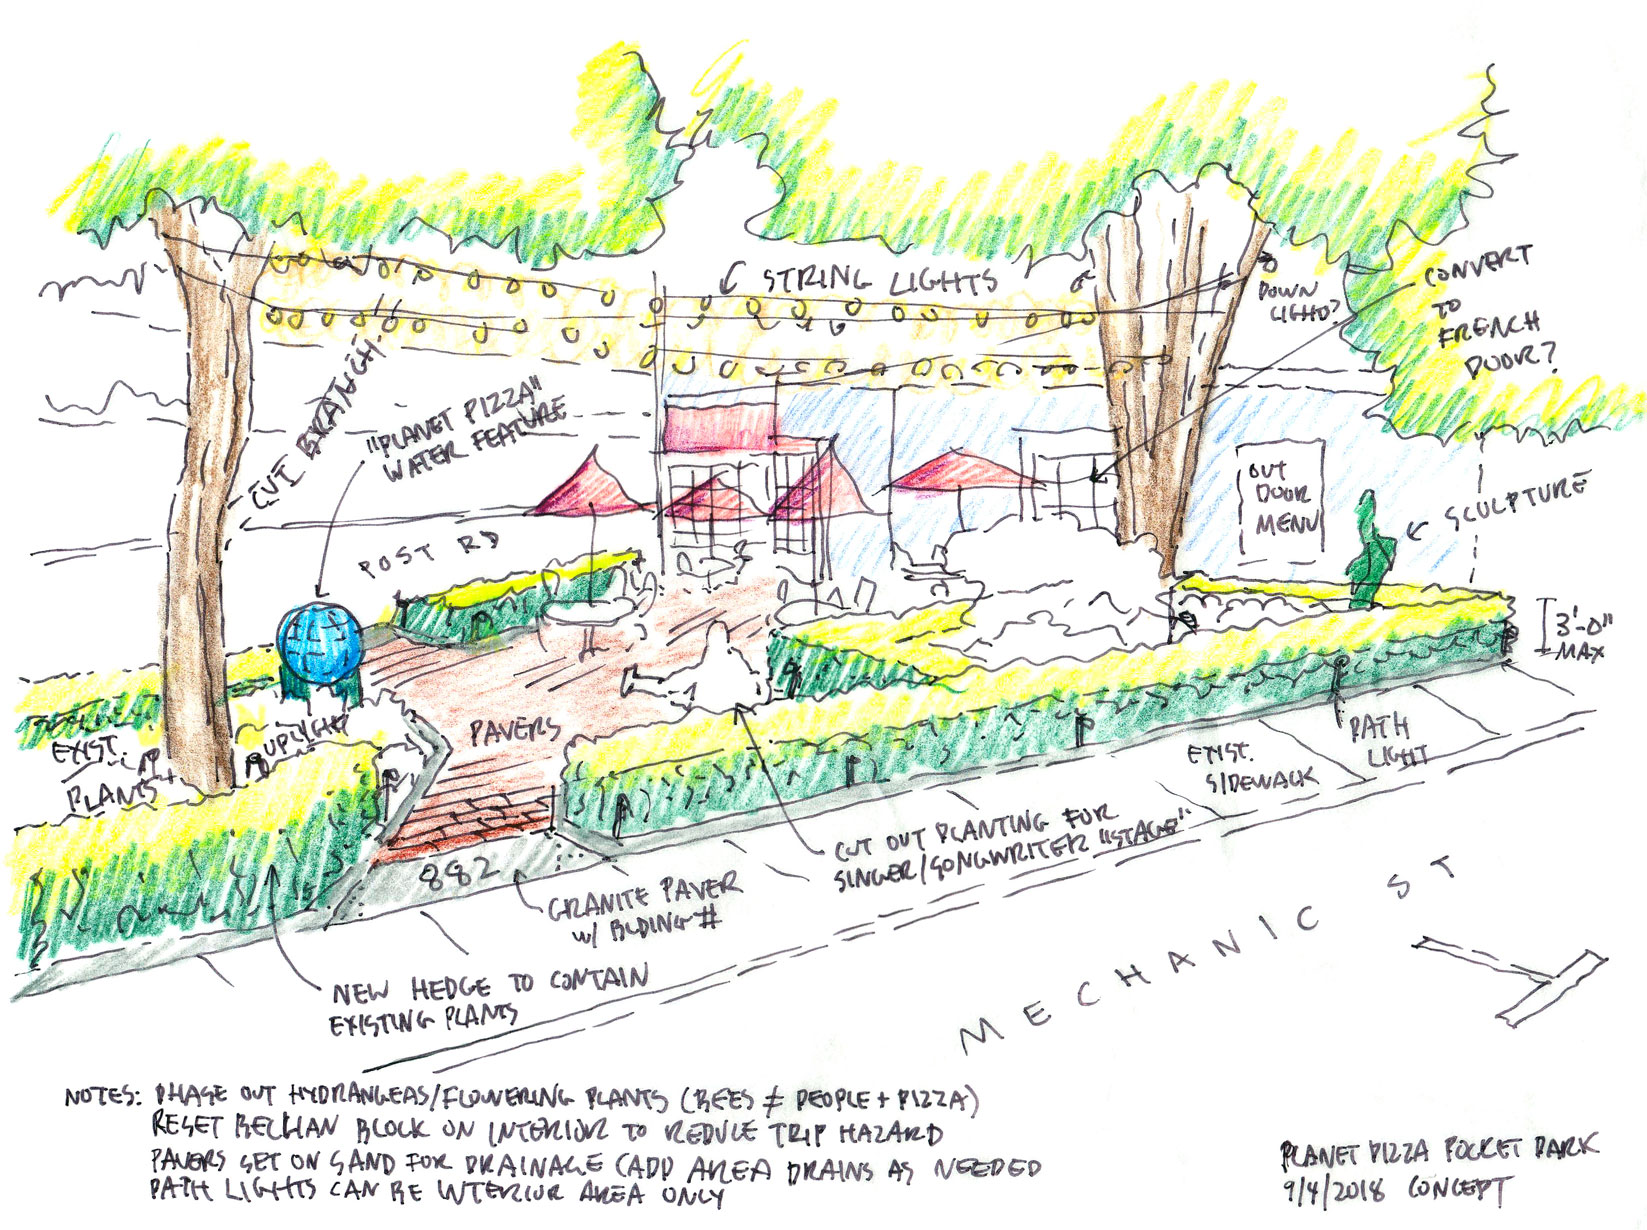 STRING LIGHTS
DOWN
LIGHT?
CONVERT
TO
FRENCH
DOOR?
CUT BRANCH.
"PLANET PIZZA"
WATER FEATURE
OUT
DOOR
MENU
SCULPTURE
POST RD
3'-0"
MAX
EXIST.
PLANTS
UPLIGHT
PAVERS
PATH
LIGHT
EXIST.
SIDEWALK
882
CUT OUT PLANTING FOR
SINGER/SONGWRITER "STAGE"
GRANITE PAVER
W/ BLDING #
NEW HEDGE TO CONTAIN
EXISTING PLANTS
MECHANIC ST
NOTES: PHASE OUT HYDRANGEAS/FLOWERING PLANTS (BEES ≠ PEOPLE + PIZZA)
RESET BELGIAN BLOCK ON INTERIOR TO REDUCE TRIP HAZARD
PAVERS SET ON SAND FOR DRAINAGE (ADD AREA DRAINS AS NEEDED
PATH LIGHTS CAN BE INTERIOR AREA ONLY
PLANET PIZZA POCKET PARK
9/4/2018 CONCEPT